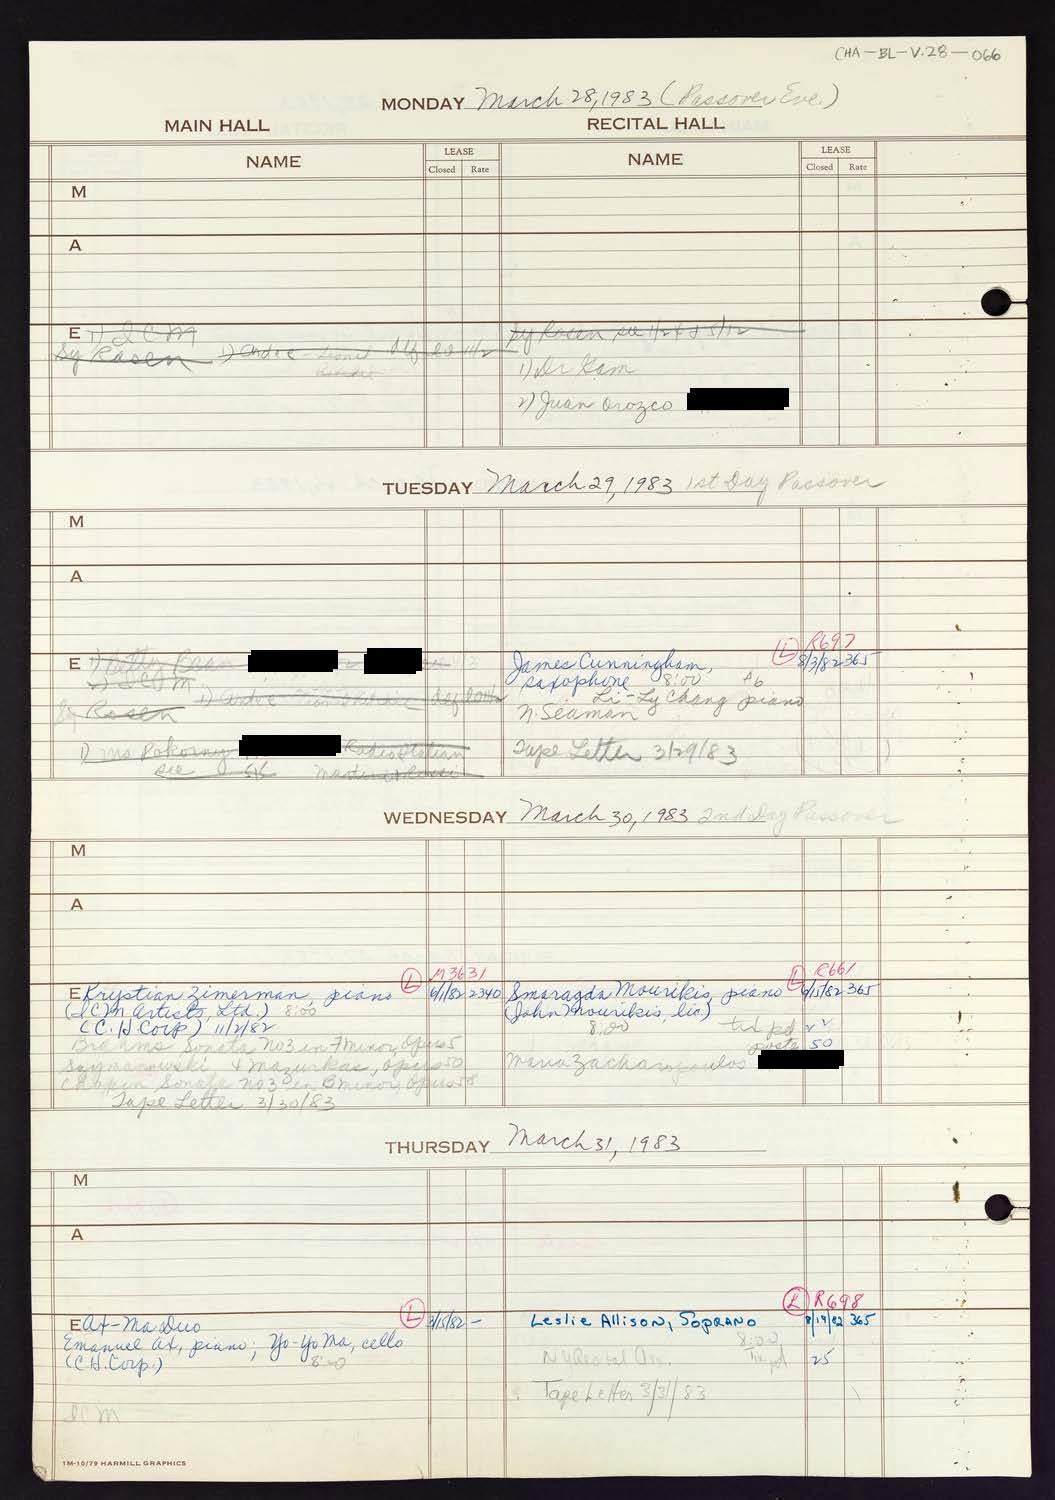 CHA-BL-V.28-066
MONDAY March 28, 1983 (Passover Eve.)
MAIN HALL
RECITAL HALL
NAME
LEASE
Closed
Rate
NAME
LEASE
Closed
Rate
M
A
E 1) ICM
Sy Rosen
1) Andre
Sy Rosen see 11/24 & 5/12
1) Dr Gam
2) Juan Orozco
TUESDAY March 29, 1983 1st Day Passover
M
A
E 1) Betty Bean
2) ICM
Sy Rosen
1) Ms Pokorny Radio Station
see
R697
L
James Cunningham, 8/3/82 365
saxophone 8:00
Li-Ly Chang piano
N. Seaman
Tape Letter 3/29/83
WEDNESDAY March 30, 1983 2nd Day Passover
M
A
L M3631
E Krystian Zimerman, piano 6/1/82 2340
(ICM Artists, Ltd.) 8:00
(C.H. Corp) 11/2/82
Brahms Sonata No 3 in F minor, Opus 5
Szymanowski 4 Mazurkas, opus 50
Chopin Sonata No 3 in B minor, Opus 58
Tape Letter 3/30/83
L R661
Smaragda Mourikis, piano 6/15/82 365
(John Mourikis, lic.)
8:00
pd
50
Maria Zacharopoulos
THURSDAY March 31, 1983
M
A
L
E Ax-Ma Duo 3/15/82 -
Emanuel Ax, piano; Yo-Yo Ma, cello
(C.H. Corp.) 8:00
ICM
L R698
Leslie Allison, Soprano 8/19/82 365
8:00
NY Recital 25
Tape Letter 3/31/83
1M-10/79 HARMILL GRAPHICS